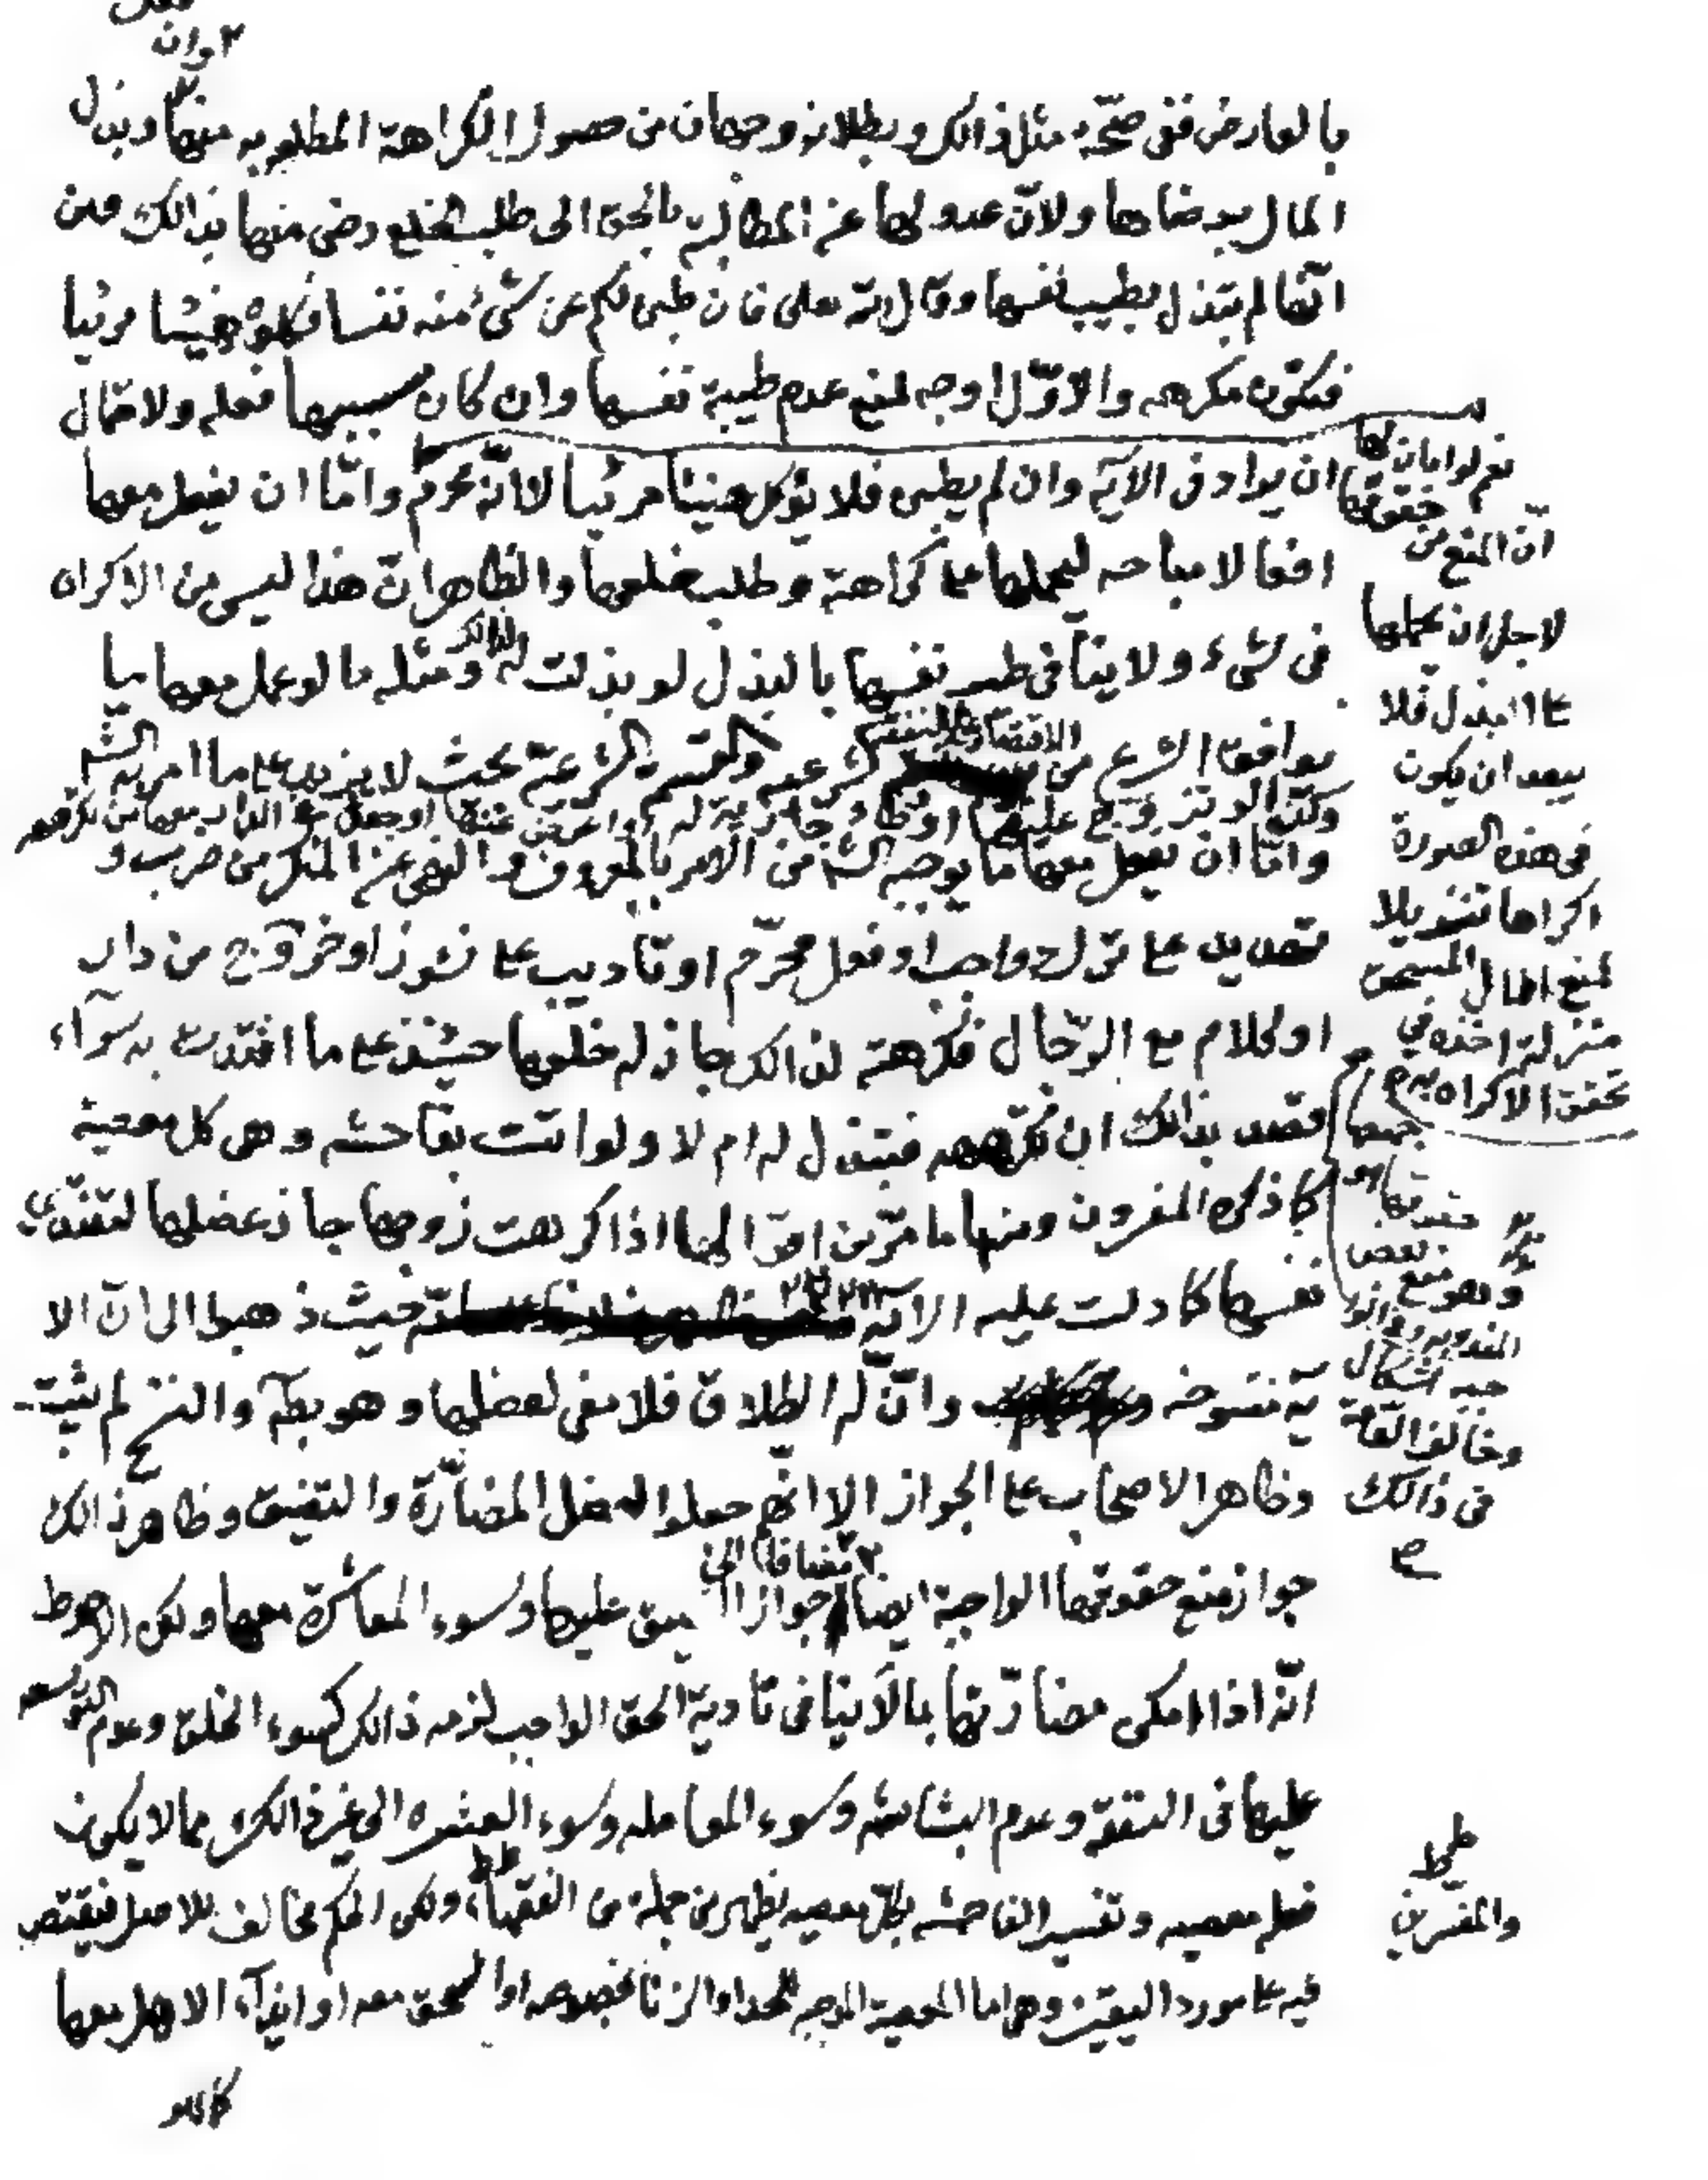 وان
بالعارض ففى صحّة مثل ذالك وبطلانه وجهان من حصول الكراهة المطلوبه منها وبذل
المال برضاها ولانّ عدولها عن المطالبة بالحق الى طلب الخلع رضى منها بذالك ومن
انّها لم تبذل بطيب نفسها وقال الله تعلى فان طبن لكم عن شىء منه نفسا فكلوه هنيئا مريئا
فتكون مكرهه والاوّل اوجه لمنع عدم طيبة نفسها وان كان سببها فعله ولاحتمال
ان يراد فى الآية وان لم يطبن فلا يؤكل هنيئا مريئا لا انّه محرّم وامّا ان يفعل معها
افعالا مباحه ليحملها على كراهته وطلب خلعها والظاهر انّ هذا ليس من الاكراه
فى شىء ولا ينافى طيب نفسها بالبذل لو بذلت له لذالك ومثله ما لو عمل معها بما
يوافق الشرع من الاقتصار على النفقة الشرعيه والقسمة الشرعيّة بحيث لا يزيد على ما امر به الش
وكذا لو تزوّج عليها او وطاء جارية له
وامّا ان يفعل معها ما يوجبه الش من الامر بالمعروف والنهى عن المنكر من ضرب و
تهديد على ترك واجب او فعل محرّم او تاديب على نشوز او خروج من دار
او كلام مع الرّجال فكرهته لذالك جاز له خلعها حينئذ على ما افتدت به سوآء
قصد بذالك ان تكرهه فتبذل له ام لا ولو اتت بفاحشه وهى كل معصية
كما ذكره المفسرون ومنها ما مرّ من اقوالها اذا كرهت زوجها جاز عضلها لتفتدي
نفسها كما دلت عليه الاية حيث ذهبوا الى انّ الا
ية منسوخه وانّ له الطلاق فلا معنى لعضلها وهو بطآ والنسخ لم يثبت
وظاهر الاصحاب على الجواز الا انّهم جعلوا العضل المضارّة والتضييق وظاهر ذالك
جواز منع حقوقها الواجبة ايضا مضافا الى جواز التضييق عليها وسوء المعاشرة معها ولكن الاحوط
انّه اذا امكن مضارّتها بما لا ينافى تادية الحق الواجب لزمه ذالك كسوء الخلق وعدم التوسعه
عليها فى النفقة وعدم البشاشه وسوء المعامله وسوء العشره الى غير ذالك مما لا يكون
فعله معصيه وتفسير الفاحشه بكلّ معصيه يظهر من جمله من الفقهاء ولكن الحكم مخالف للاصل فيقتصر
فيه على مورد اليقين وهى اما المعصية الموجبه للحد او الزنا بخصوصه او السحق معه او ايذآء الاهل معها
نعم لو ابان لها
انّ المنع من حقوقها
لاجل ان يحملها
على البذل فلا
يبعد ان يكون
فى هذه الصورة
اكراها تنزيلا
لمنع المال المستحق
منزلة اخذه فى
تحقق الاكراه به
حقوقها
بعض
وهو منع
المندوبه
اشكال
وخالف العامّة
فى ذالك
صح
والمفسرين